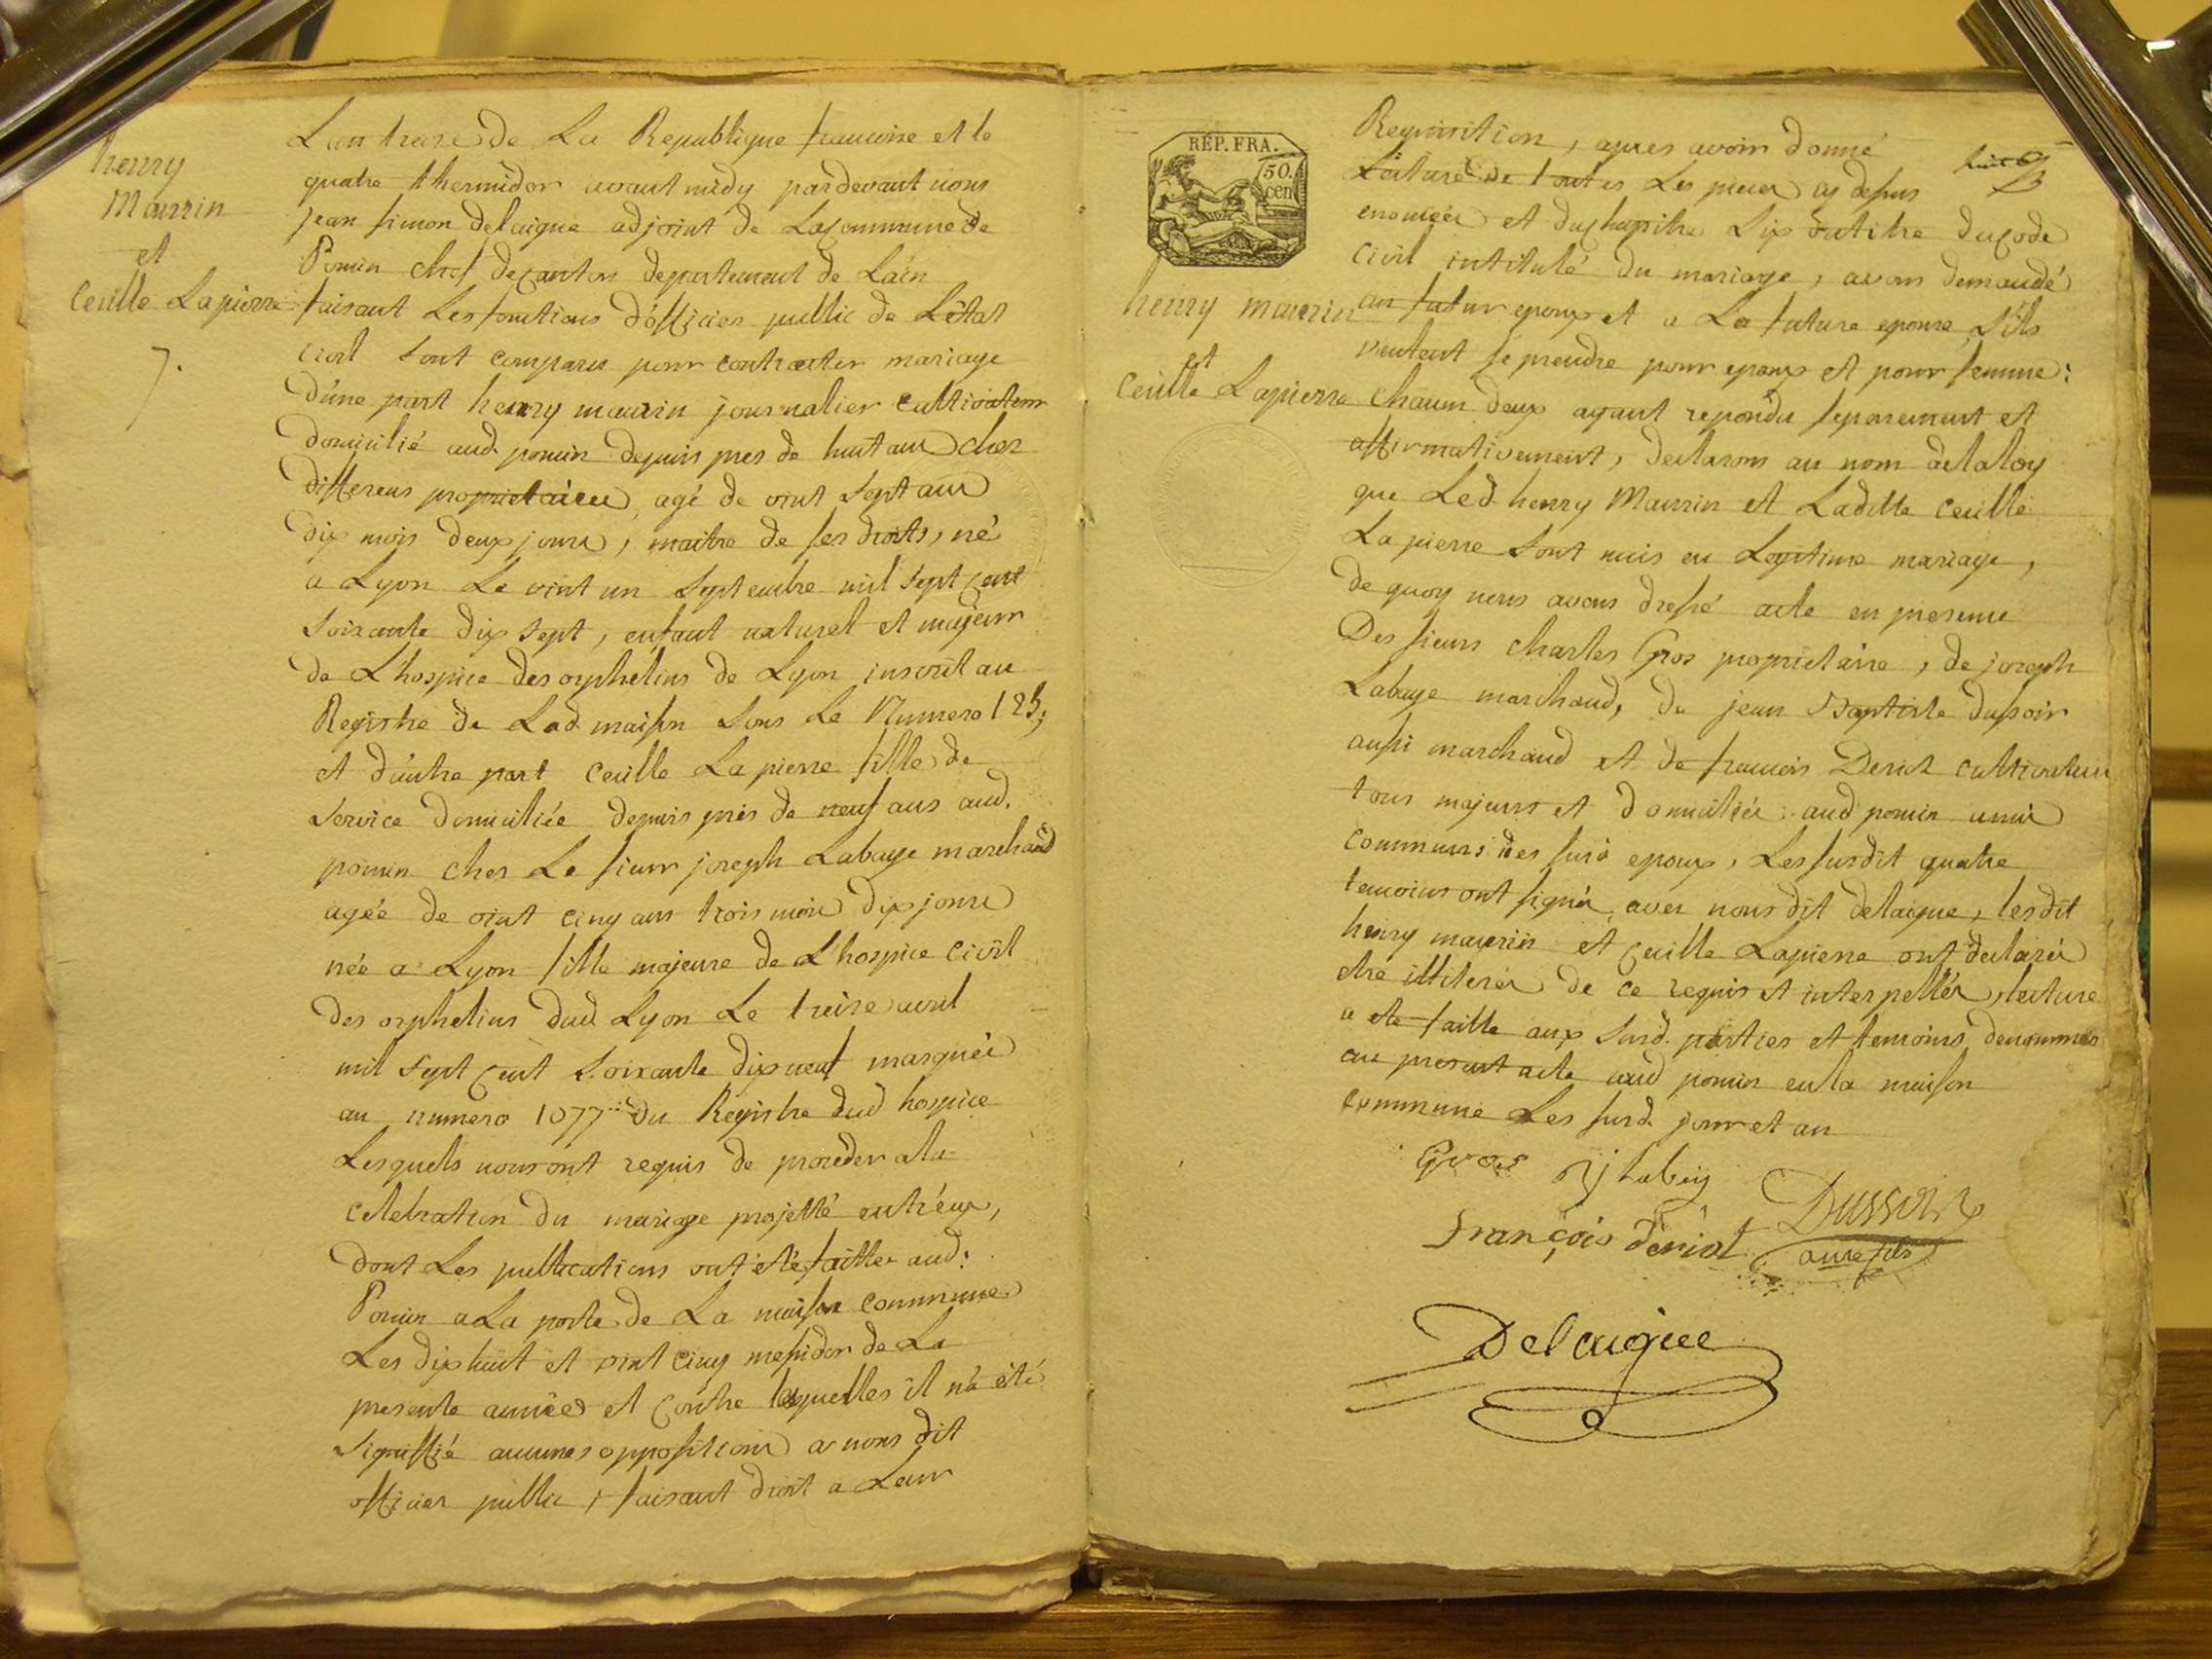 henry
Maurin
et
Cecille Lapierre
7.
L'an treize de La Republique francoise et le
quatre thermidor avant midy pardevant nous
jean simon delaigue adjoint de La commune de
Poncin chef de canton departement de Laín
faisant Les fonctions d'officier public de L'état
civil sont comparus pour contracter mariage
d'une part henry maurin journalier cultivateur
domicilié aud. poncin depuis pres de huit ans chez
differens proprietaires, agé de vint sept ans
dix mois deux jours, maitre de ses droits, né
a Lyon Le vint un septembre mil sept cent
soixante dix sept, enfant naturel et majeur
de L'hospice des orphelins de Lyon inscrit au
Registre de Lad. maison sous Le Numero 125;
et d'autre part Cecille La pierre fille de
service domiciliée depuis près de neuf ans aud.
poncin chez Le sieur joseph Labaye marchand
agée de vint cinq ans trois mois dix jours
née a Lyon fille majeure de L'hospice civil
des orphelins dud. Lyon Le treize avril
mil sept cent soixante dix neuf marquée
au numero 1077 du Registre dud hospice
Lesquels nous ont requis de proceder a la
celebration du mariage projetté entr'eux,
dont Les publications ont été faittes aud.
Poncin a La porte de La maison commune
Les dix huit et vint cinq messidor de La
presente année et contre lesquelles il n'a été
signiffié aucunes oppositions a nous dit
officier public, faisant droit a Leur
RÉP. FRA.
50.
cen
henry maurin
et
Cecille Lapierre
Requisition, apres avoir donné
Lecture de toutes Les pieces cy dessus
enoncées et du chapitre six du titre du code
civil intitulé du mariage, avons demandé
au futur epoux et a La future epouse, s'ils
veulent se prendre pour epoux et pour femme:
chacun deux ayant repondu separement et
affirmativement, declarons au nom de la loy
que Led. henry Maurin et Laditte Cecille
La pierre sont unis en Legitime mariage,
de quoy nous avons dressé acte en presence
Des sieurs charles Gros proprietaire, de joseph
Labaye marchand, de jean Baptiste dussoir
aussi marchand et de francois Deriot cultivateur
tous majeurs et domiciliés aud poncin amis
communs des susd epoux, Les susdit quatre
temoins ont signés avec nous dit delaigue, lesdit
henry maurin et Cecille Lapierre ont declarés
etre illiterés de ce requis et interpellés, lecture
a ete faitte aux susd. parties et temoins denommés
au present acte aud poncin en la maison
commune Les susd. jour et an
Gros
Dussoir
françois deriot
Delaigue